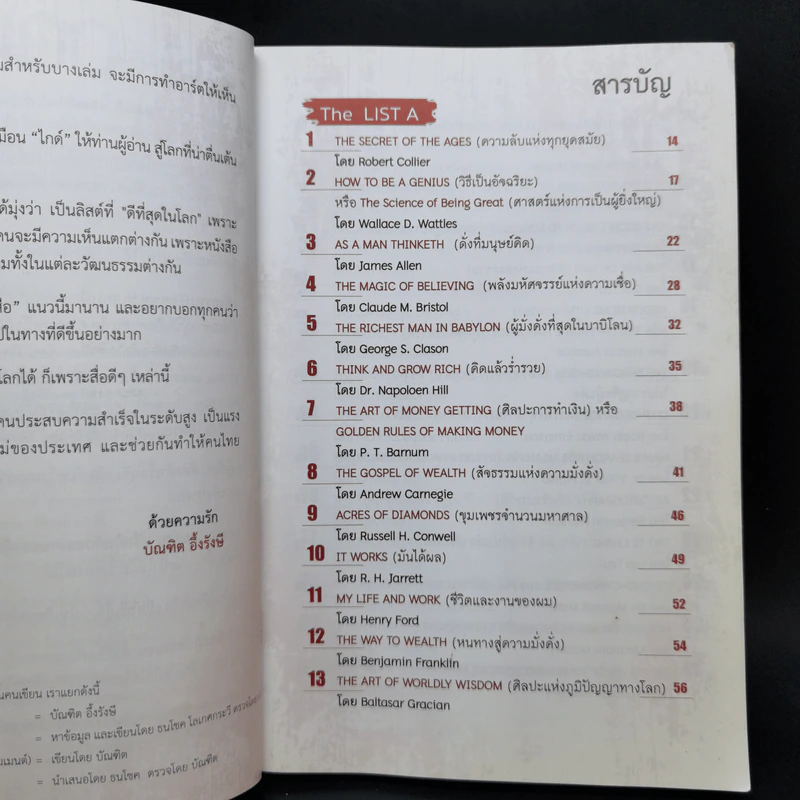 มสำหรับบางเล่ม จะมีการทำอาร์ตให้เห็น
มือน “ไกด์” ให้ท่านผู้อ่าน สู่โลกที่น่าตื่นเต้น
ด้มุ่งว่า เป็นลิสต์ที่ "ดีที่สุดในโลก" เพราะ
คนจะมีความเห็นแตกต่างกัน เพราะหนังสือ
มทั้งในแต่ละวัฒนธรรมต่างกัน
สือ” แนวนี้มานาน และอยากบอกทุกคนว่า
ปในทางที่ดีขึ้นอย่างมาก
โลกได้ ก็เพราะสื่อดีๆ เหล่านี้
คนประสบความสำเร็จในระดับสูง เป็นแรง
ม่ของประเทศ และช่วยกันทำให้คนไทย
ด้วยความรัก
บัณฑิต อึ้งรังษี
นคนเขียน เราแยกดังนี้
= บัณฑิต อึ้งรังษี
= หาข้อมูล และเขียนโดย ธนโชค โลเกศกระวี ตรวจโดย
มเมนต์) = เขียนโดย บัณฑิต
= นำเสนอโดย ธนโชค ตรวจโดย บัณฑิต
สารบัญ
The LIST A
1 THE SECRET OF THE AGES (ความลับแห่งทุกยุคสมัย) 14
โดย Robert Collier
2 HOW TO BE A GENIUS (วิธีเป็นอัจฉริยะ) 17
หรือ The Science of Being Great (ศาสตร์แห่งการเป็นผู้ยิ่งใหญ่)
โดย Wallace D. Wattles
3 AS A MAN THINKETH (ดั่งที่มนุษย์คิด) 22
โดย James Allen
4 THE MAGIC OF BELIEVING (พลังมหัศจรรย์แห่งความเชื่อ) 28
โดย Claude M. Bristol
5 THE RICHEST MAN IN BABYLON (ผู้มั่งคั่งที่สุดในบาบิโลน) 32
โดย George S. Clason
6 THINK AND GROW RICH (คิดแล้วร่ำรวย) 35
โดย Dr. Napoloen Hill
7 THE ART OF MONEY GETTING (ศิลปะการทำเงิน) หรือ 38
GOLDEN RULES OF MAKING MONEY
โดย P. T. Barnum
8 THE GOSPEL OF WEALTH (สัจธรรมแห่งความมั่งคั่ง) 41
โดย Andrew Carnegie
9 ACRES OF DIAMONDS (ขุมเพชรจำนวนมหาศาล) 46
โดย Russell H. Conwell
10 IT WORKS (มันได้ผล) 49
โดย R. H. Jarrett
11 MY LIFE AND WORK (ชีวิตและงานของผม) 52
โดย Henry Ford
12 THE WAY TO WEALTH (หนทางสู่ความมั่งคั่ง) 54
โดย Benjamin Franklin
13 THE ART OF WORLDLY WISDOM (ศิลปะแห่งภูมิปัญญาทางโลก) 56
โดย Baltasar Gracian